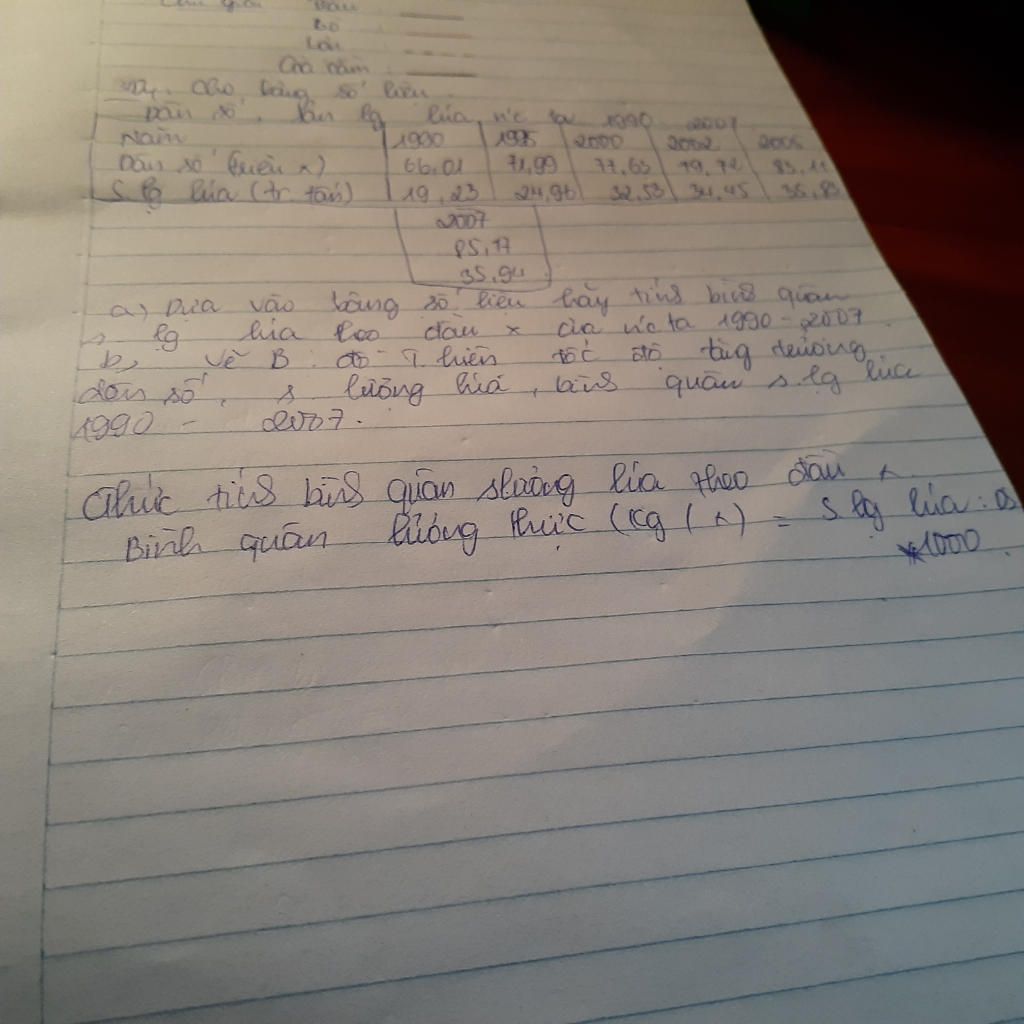 Bò
Lợn
Cho bảng số liệu
Dân số, sản lg lúa n'c ta 1990 2007
Năm 1990 1995 2000 2002 2005
Dân số (triệu x) 66,01 71,99 77,63 79,72 83,11
S lg lúa (tr. tấn) 19,23 24,96 32,53 34,45 35,83
2007
85,17
35,94
a) Dựa vào bảng số liệu hãy tính bình quân
s lg lúa theo đầu x của n'c ta 1990 - 2007.
b, Vẽ B. đồ T. hiện tốc độ tăg trưởng
dân số, s lượng lúa, bình quân s.lg lúa
1990 - 2007.
thức tính bình quân slượng lúa theo đầu x
Bình quân lương thực (Kg / x) = S lg lúa : DS
x1000